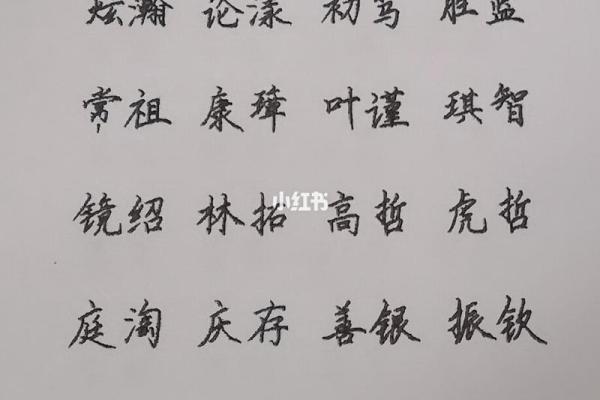 炫瀚 论漾 初笃 胜蓝
常祖 康璋 叶谨 琪智
镜绍 林拓 高哲 虎哲
小红书
庭淘 庆存 善银 振钦